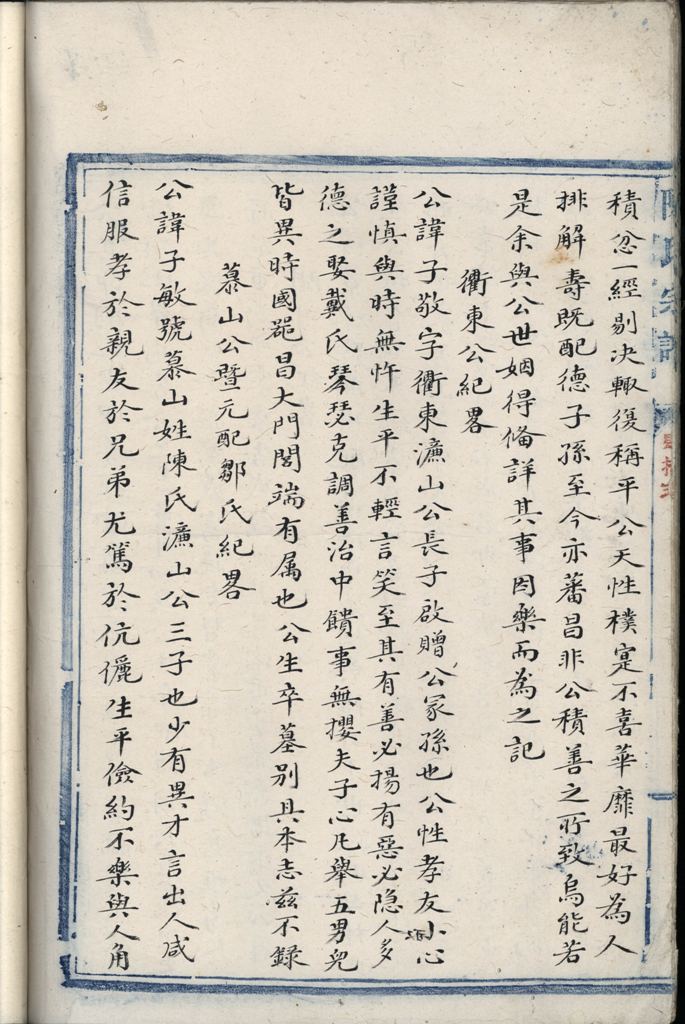 陳氏宗譜
積忿一經剔决輙復稱平公天性樸寔不喜華靡最好為人
排解壽既配德子孫至今亦蕃昌非公積善之所致烏能若
是余與公世姻得俻詳其事因樂而為之記
衢東公紀畧
公諱子敬字衢東濂山公長子啟贈公冢孫也公性孝友小心
謹慎與時無忤生平不輕言笑至其有善必揚有惡必隐人多
德之娶戴氏琴瑟克調善治中饋事無攖夫子心凡舉五男兒
皆異時國器昌大門閭端有属也公生卒墓别具本志兹不録
慕山公暨元配鄒氏紀畧
公諱子敏號慕山姓陳氏濂山公三子也少有異才言出人咸
信服孝於親友於兄弟尤篤於伉儷生平儉約不樂與人角